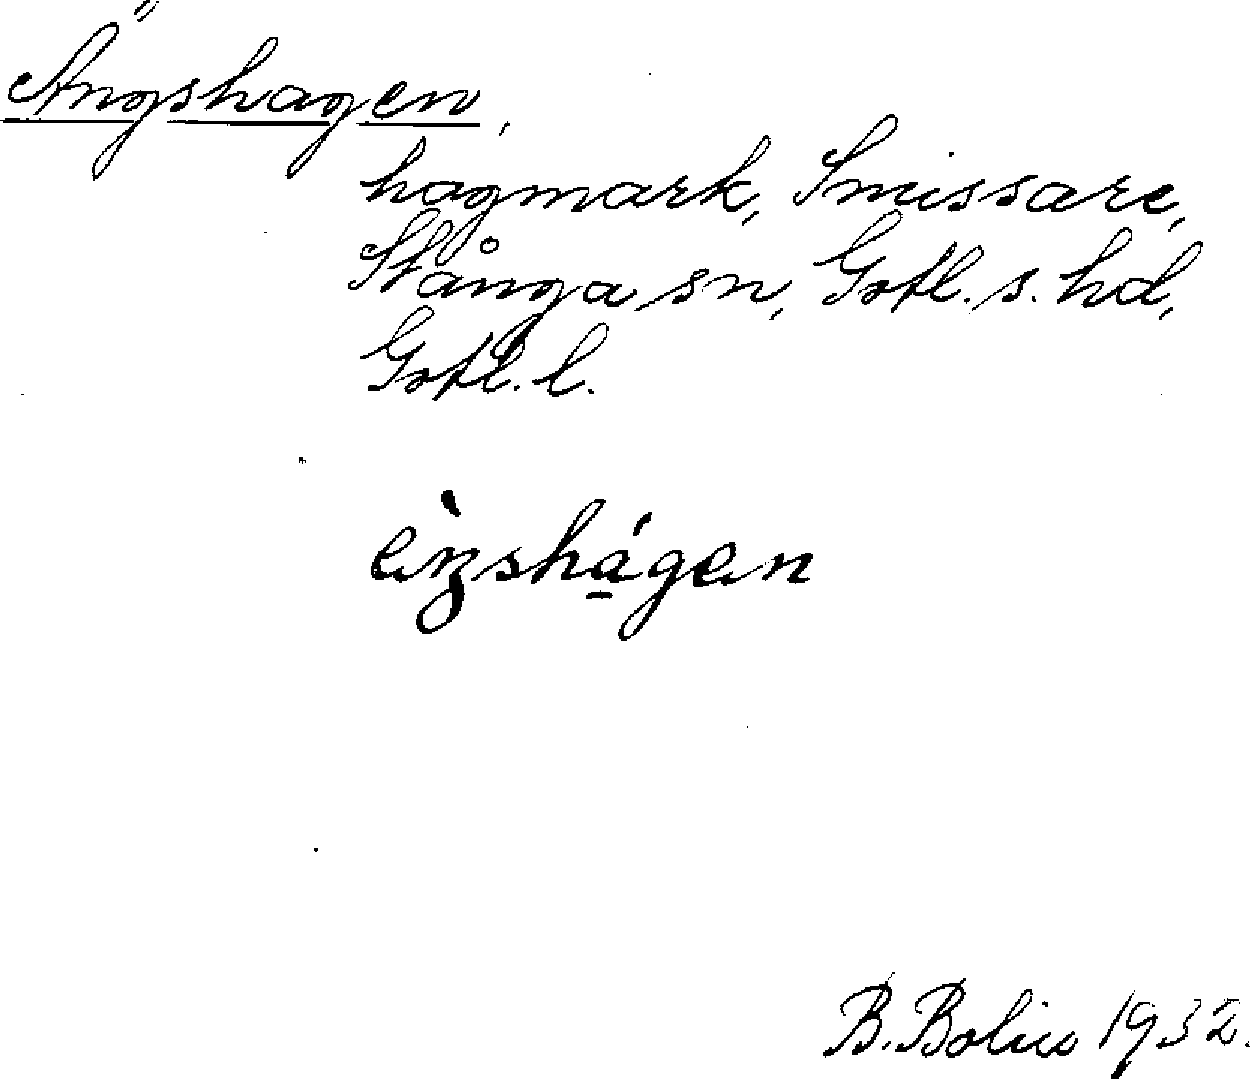 Ängshagen,
hagmark, Smissare,
Stånga sn, Gotl. s. hd,
Gotl. l.
B. Bolin 1932.